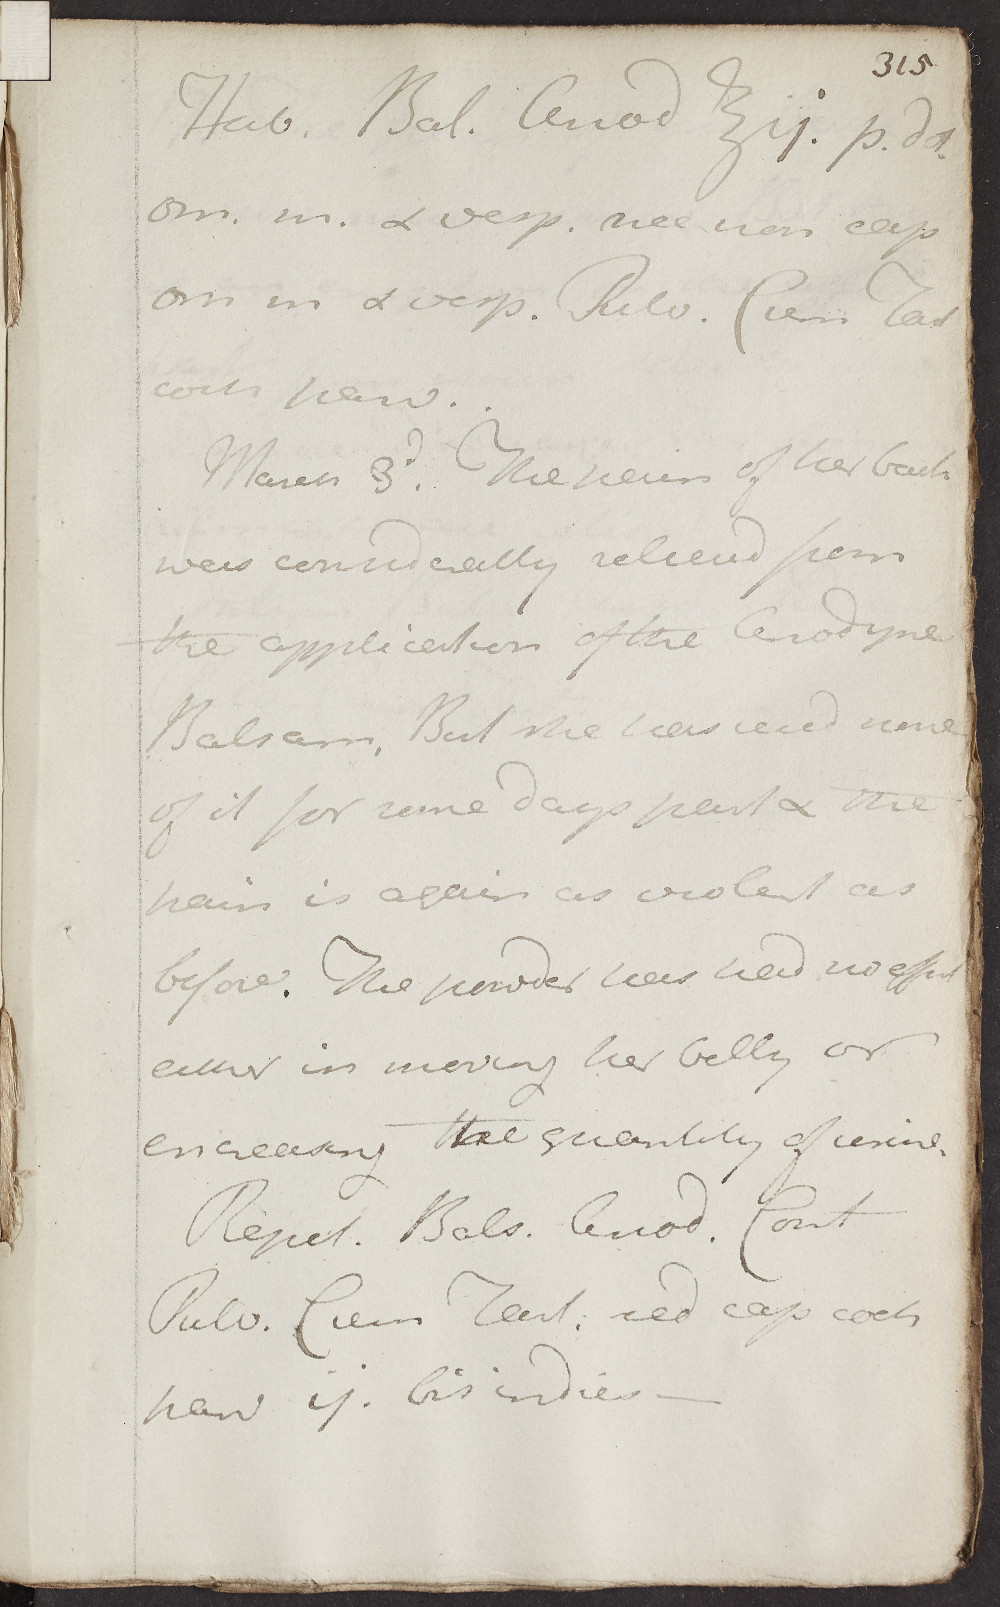 315
Hab. Bal. Anod ℥ij. p. dol.
om. m. & vesp. nec non cap
om m & vesp. Pulv. Crem Tart
coch parv..
March 3d. The pain of her back
was considerally relieved from
the application of the Anodyne
Balsam, But she has used none
of it for some days past & the
pain is again as violent as
before. The powder has had no effect
either in moving her belly or
encreasing the quantity of urine.
Repet. Bals. Anod. Cont
Pulv. Crem Tart. sed cap coch
parv ij. bis indies —